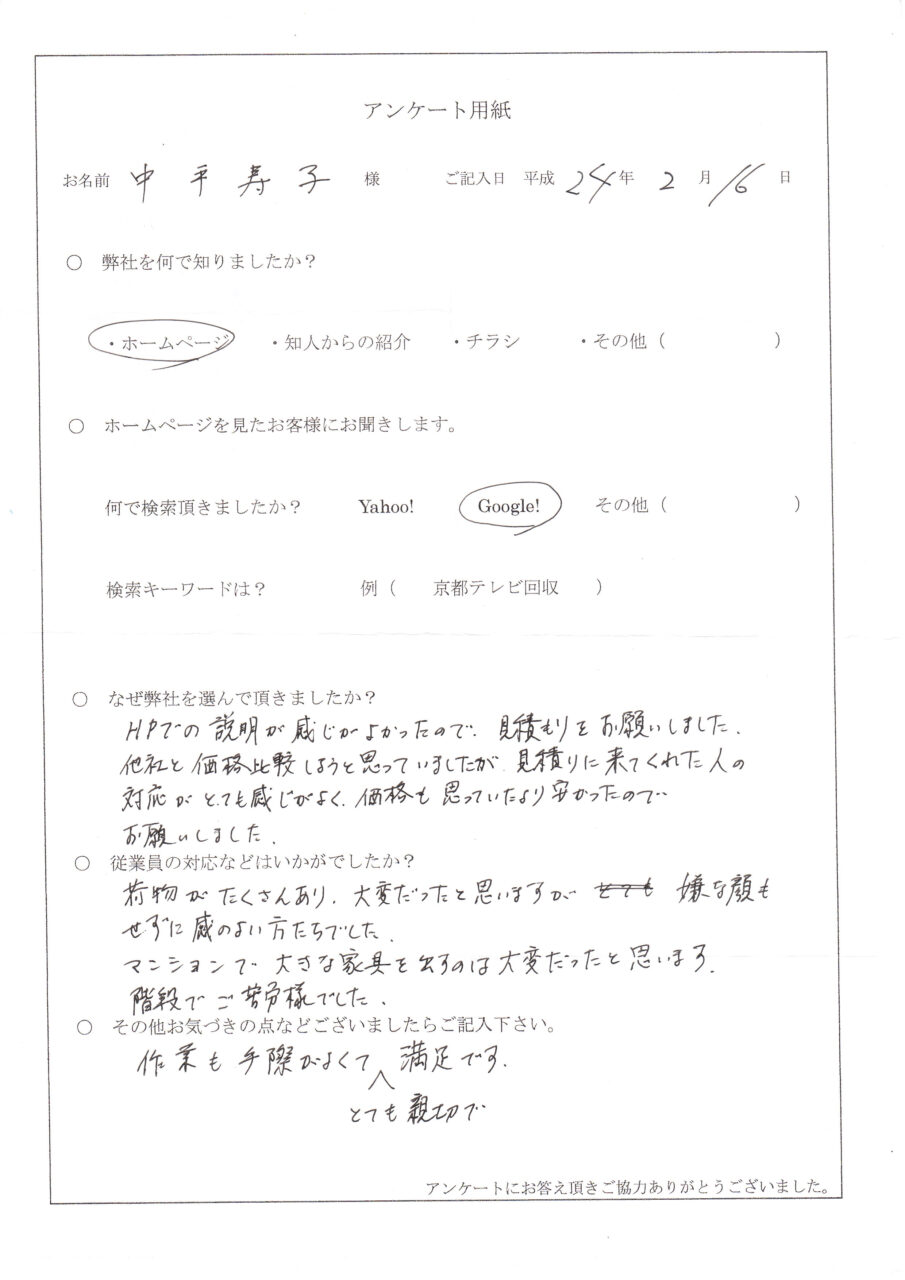 アンケート用紙
お名前 中平寿子 様 ご記入日 平成 24 年 2 月 16 日
○ 弊社を何で知りましたか？
・ホームページ ・知人からの紹介 ・チラシ ・その他（ ）
○ ホームページを見たお客様にお聞きします。
何で検索頂きましたか？ Yahoo! Google! その他（ ）
検索キーワードは？ 例（ 京都テレビ回収 ）
○ なぜ弊社を選んで頂きましたか？
HPでの説明が感じがよかったので、見積もりをお願いしました.
他社と価格比較しようと思っていましたが、見積りに来てくれた人の
対応がとても感じがよく、価格も思っていたより安かったので
お願いしました.
○ 従業員の対応などはいかがでしたか？
荷物がたくさんあり、大変だったと思いますが とても 嫌な顔も
せずに感のよい方たちでした.
マンションで大きな家具を出すのは大変だったと思います.
階段でご苦労様でした.
○ その他お気づきの点などございましたらご記入下さい。
作業も手際がよくて 満足です.
とても親切で
アンケートにお答え頂きご協力ありがとうございました。